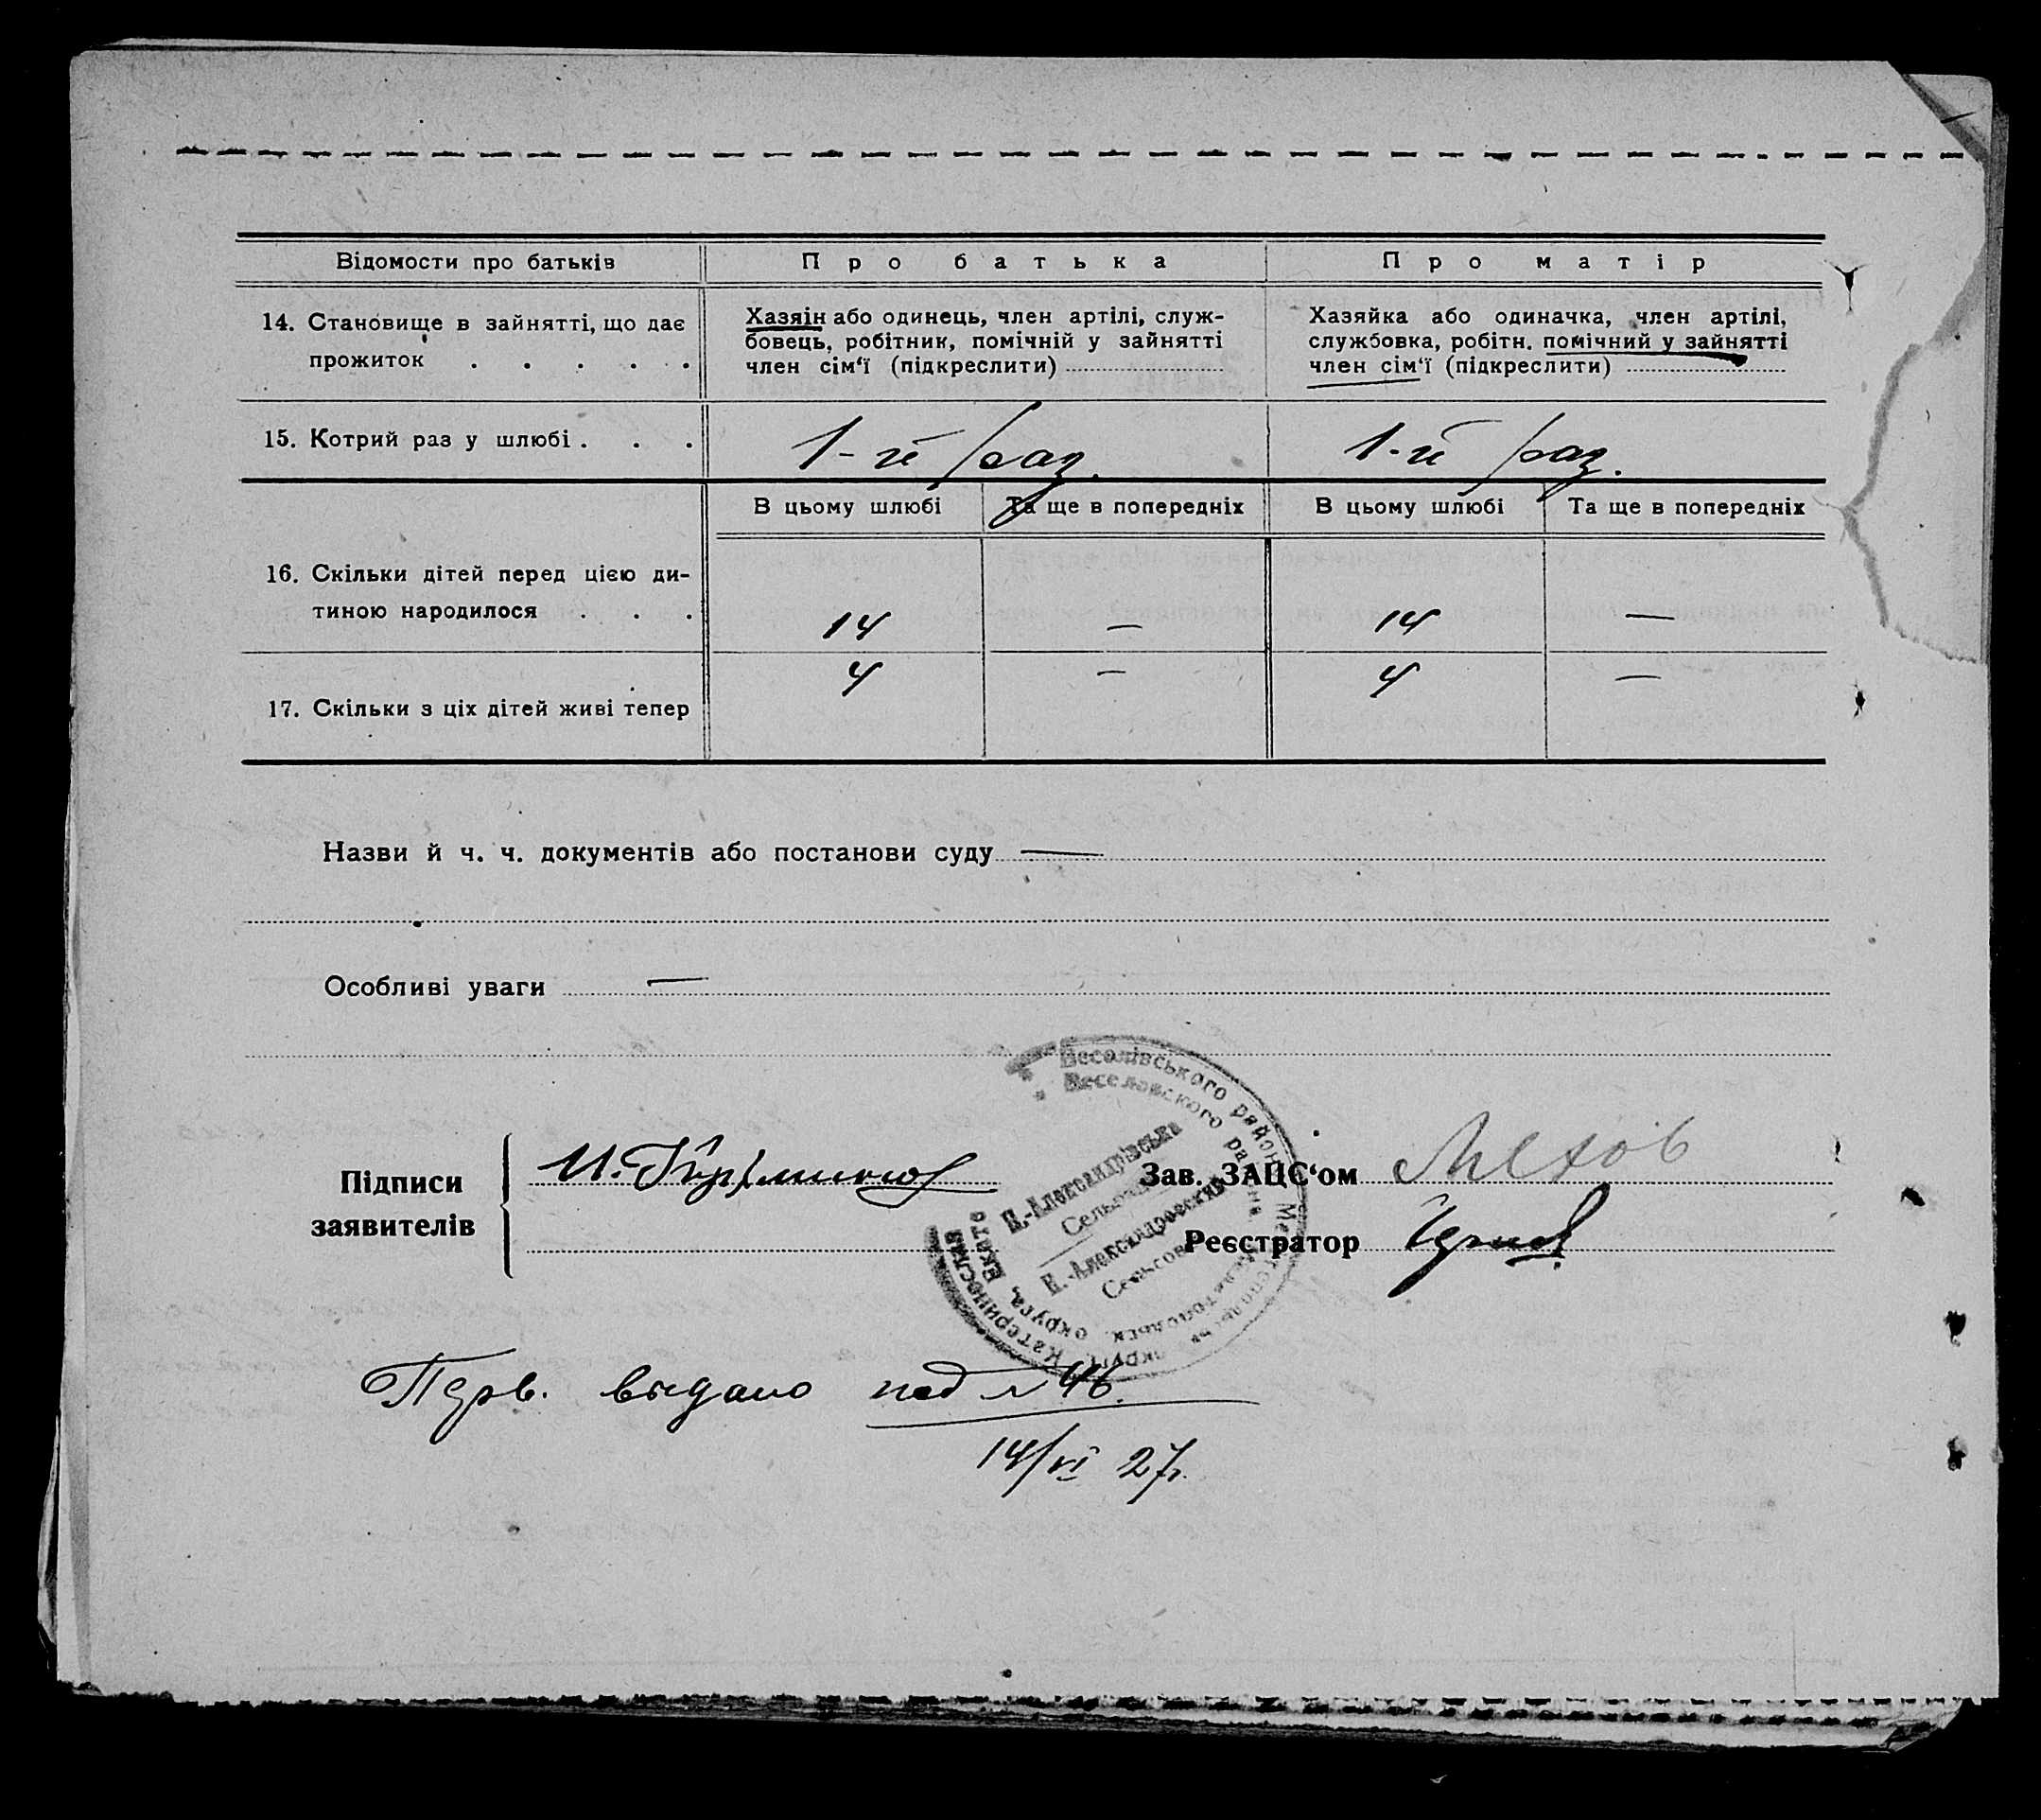 Відомости про батьків
Про батька
Про матір
14. Становище в зайнятті, що дає
прожиток . . . . .
Хазяін або одинець, член артілі, служ-
бовець, робітник, помічній у зайнятті
член сім‘ї (підкреслити)
Хазяйка або одиначка, член артілі,
службовка, робітн. помічний у зайнятті
член сім‘ї (підкреслити)
15. Котрий раз у шлюбі . . .
1-й раз.
1-й раз.
В цьому шлюбі
Та ще в попередніх
В цьому шлюбі
Та ще в попередніх
16. Скільки дітей перед цією ди-
тиною народилося . . .
14
—
14
—
17. Скільки з ціх дітей живі тепер
4
—
4
—
Назви й ч. ч. документів або постанови суду —
Особливі уваги —
Веселівського район
Веселовского района
Мелітопольськ округи Катеринослав
Мелитопольск. округа, Екате
Н.-Александрівська
Сельрада
Н.-Александровский
Сельсов
Підписи
заявителів
И.
Зав. ЗАЦС‘ом
Реєстратор
Перв. выдано под № 46.
14/VI 27г.